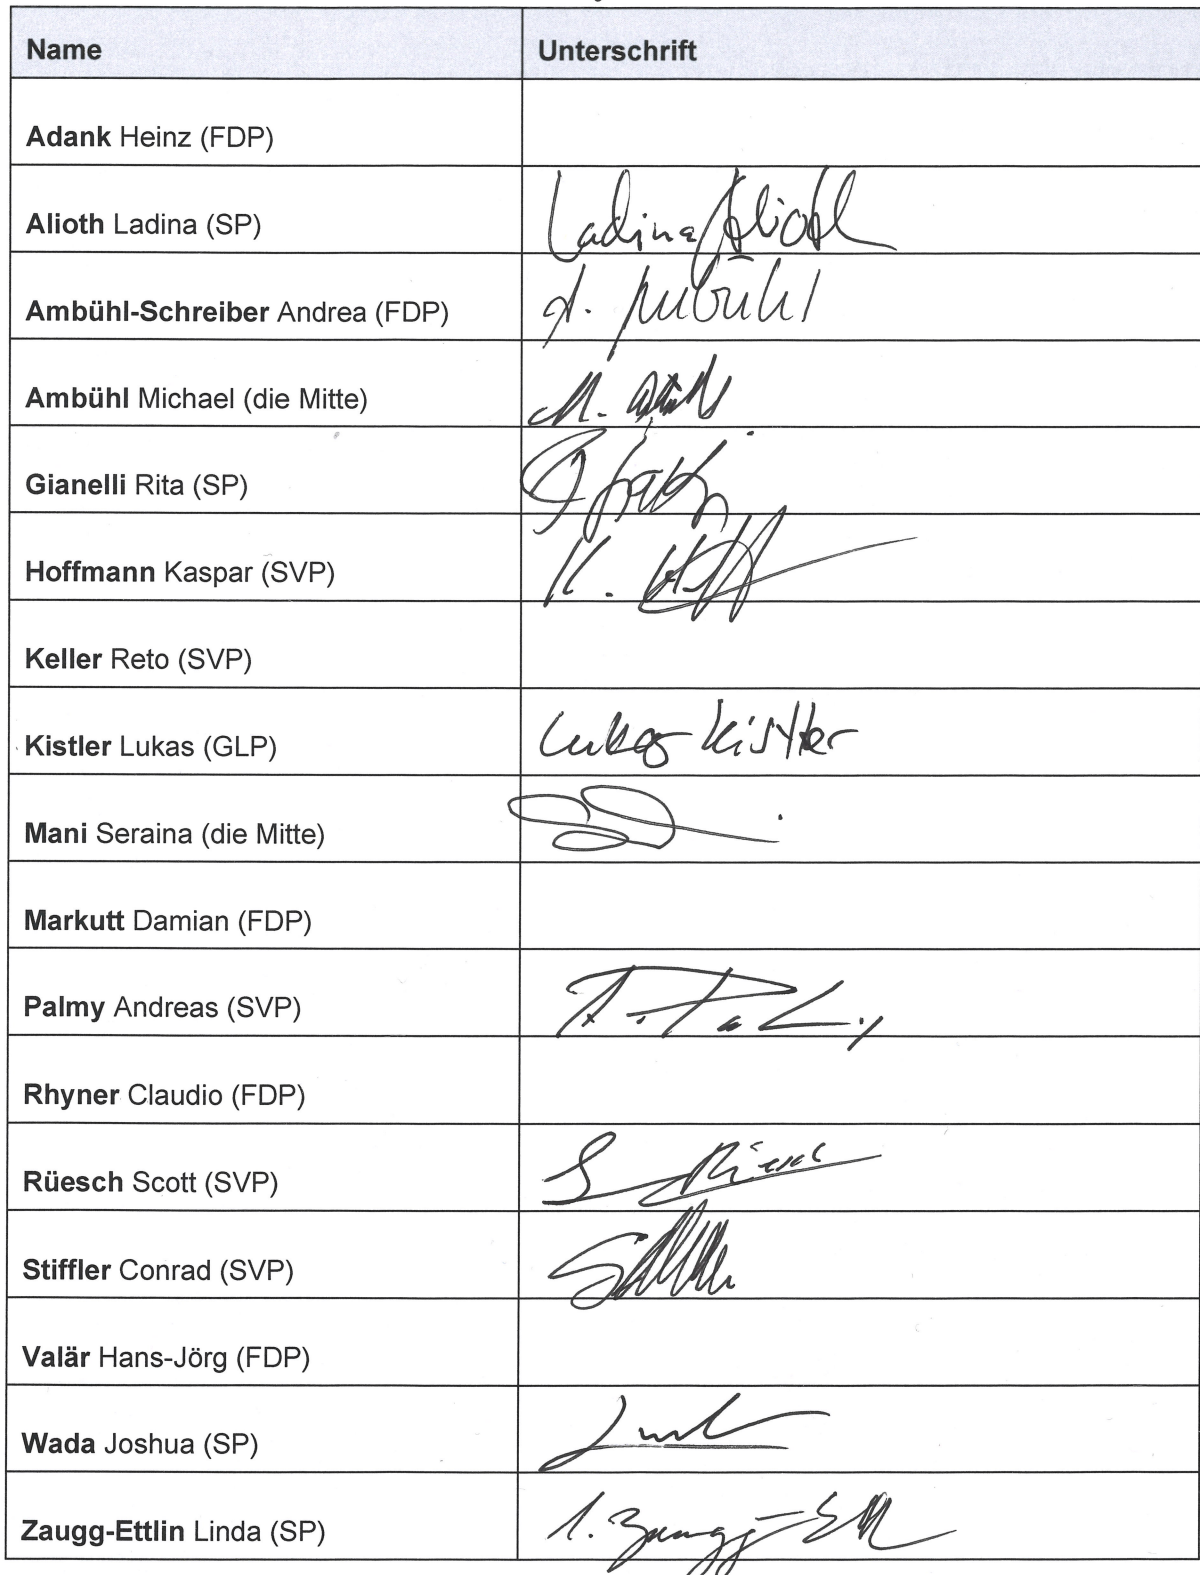 Name Unterschrift
Adank Heinz (FDP)
Alioth Ladina (SP) Ladina Alioth
Ambühl-Schreiber Andrea (FDP) A. Ambühl
Ambühl Michael (die Mitte) M.
Gianelli Rita (SP)
Hoffmann Kaspar (SVP) K.
Keller Reto (SVP)
Kistler Lukas (GLP) Lukas Kistler
Mani Seraina (die Mitte)
Markutt Damian (FDP)
Palmy Andreas (SVP) A. Palmy
Rhyner Claudio (FDP)
Rüesch Scott (SVP) S. Rüesch
Stiffler Conrad (SVP)
Valär Hans-Jörg (FDP)
Wada Joshua (SP)
Zaugg-Ettlin Linda (SP) l. Zaugg-Ett